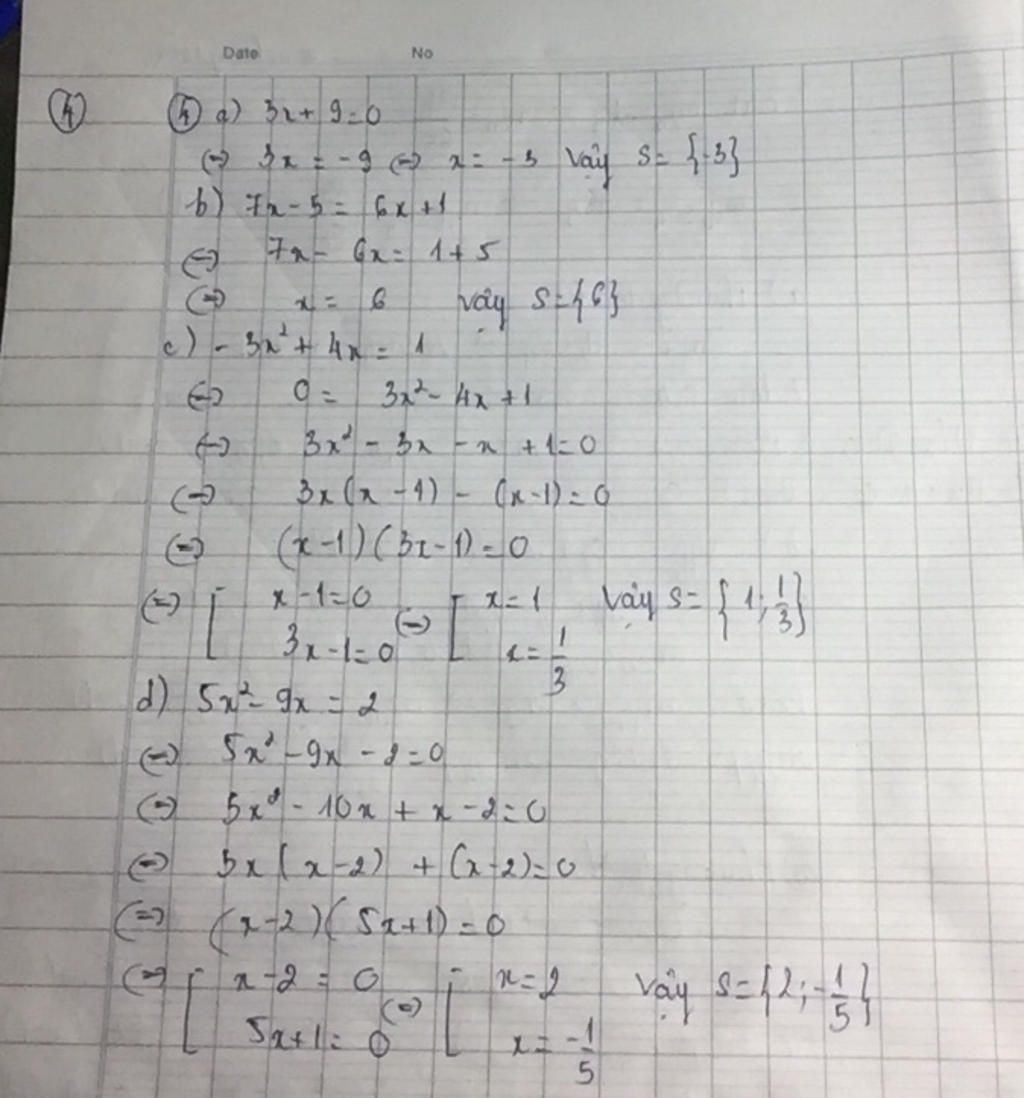 Date No
④ ④ a) 3x + 9 = 0
⇔ 3x = -9 ⇔ x = -3 Vậy S = {-3}
b) 7x - 5 = 6x + 1
⇔ 7x - 6x = 1 + 5
⇔ x = 6 Vậy S = {6}
c) -3x² + 4x = 1
⇔ 0 = 3x² - 4x + 1
⇔ 3x² - 3x - x + 1 = 0
⇔ 3x(x - 1) - (x - 1) = 0
⇔ (x - 1)(3x - 1) = 0
⇔ [ x - 1 = 0 ⇔ [ x = 1 Vậy S = {1; 1/3}
3x - 1 = 0 x = 1/3
d) 5x² - 9x = 2
⇔ 5x² - 9x - 2 = 0
⇔ 5x² - 10x + x - 2 = 0
⇔ 5x(x - 2) + (x - 2) = 0
⇔ (x - 2)(5x + 1) = 0
⇔ [ x - 2 = 0 ⇔ [ x = 2 Vậy S = {2; -1/5}
5x + 1 = 0 x = -1/5